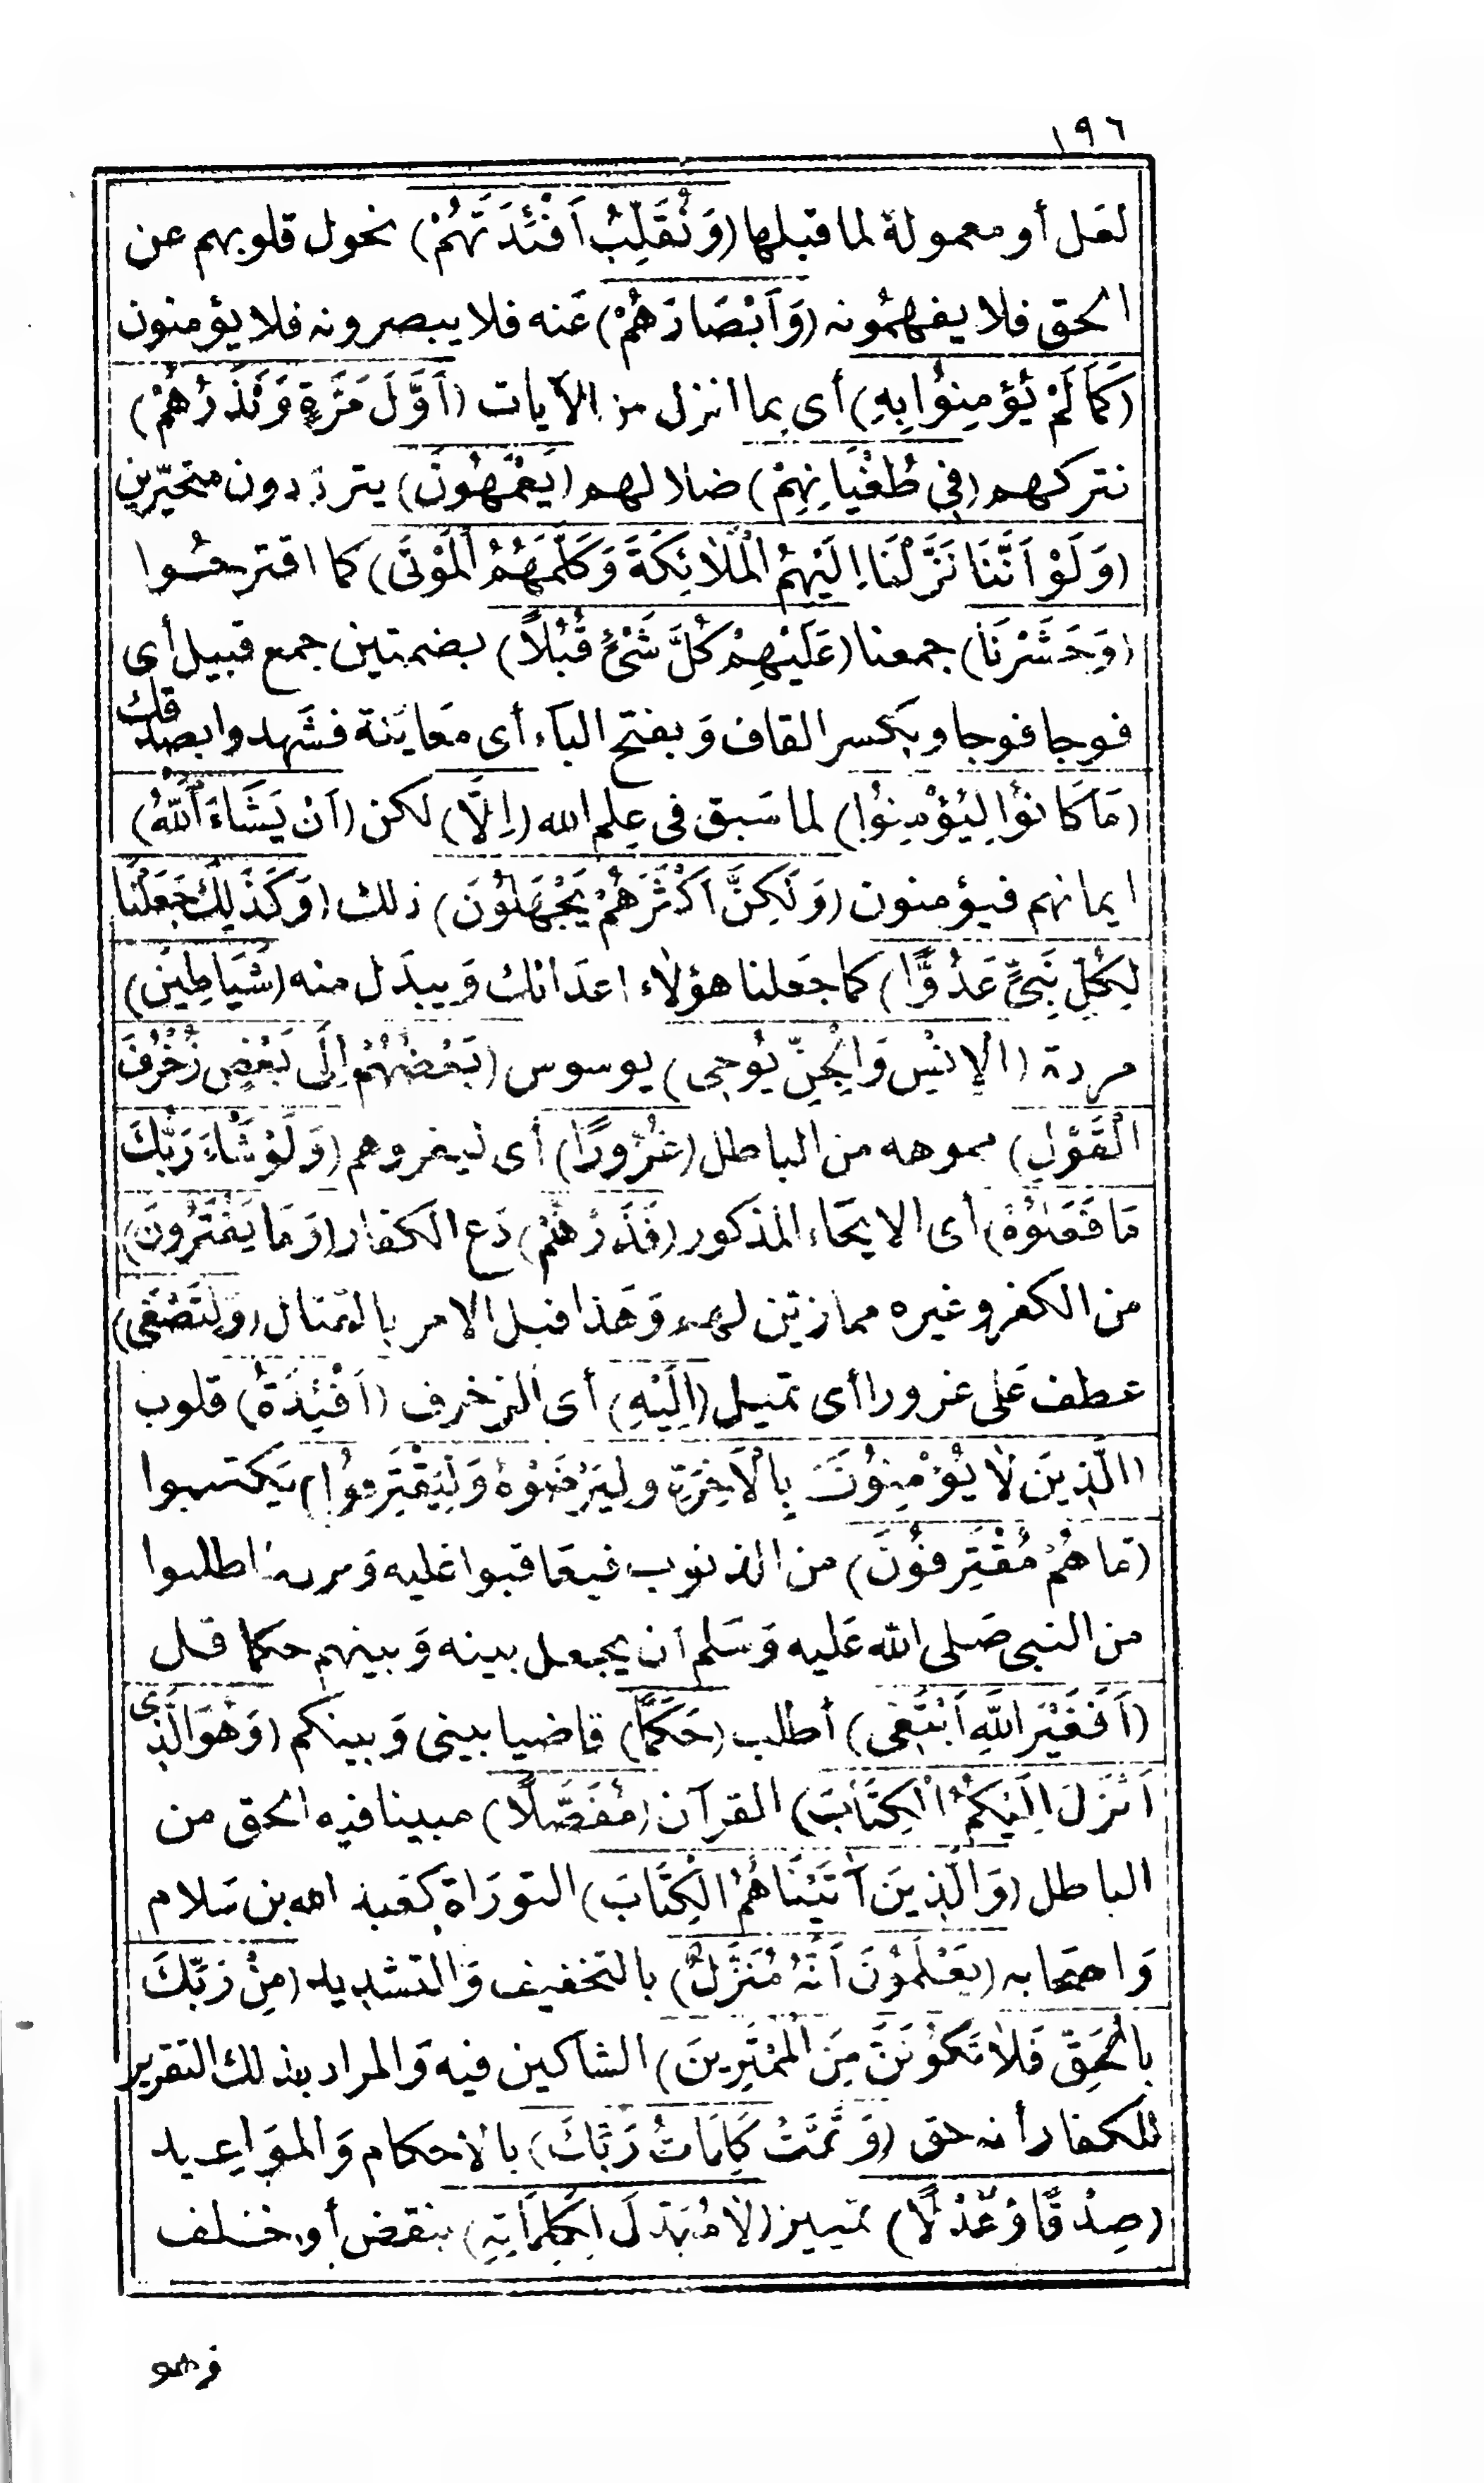 ١٩٦
لعل أو معمولة لما قبلها (وَنُقَلِّبُ اَفْئِدَتَهُمْ) نحول قلوبهم عن
الحق فلا يفهمونه (وَاَبْصَارَهُمْ) عَنه فلا يبصرونه فلا يؤمنون
(كَمَا لَمْ يُؤْمِنُوا بِهِ) أى بما انزل من الآيات (اَوَّلَ مَرَّةٍ وَنَذَرُهُمْ)
نتركهم (فِى طُغْيَانِهِمْ) ضلالهم (يَعْمَهُونَ) يترددون متحيّرين
(وَلَوْ اَنَّنَا نَزَّلْنَا اِلَيْهِمُ الْمَلَائِكَةَ وَكَلَّمَهُمُ الْمَوْتَى) كما اقترحُوا
(وَحَشَرْنَا) جمعنا (عَلَيْهِمْ كُلَّ شَىْءٍ قُبُلاً) بضمتين جمع قبيل أى
فوجا فوجا وبكسر القاف وَبفتح البآء أى مَعايَنة فشَهدوا بصدقك
(مَا كَانُوا لِيُؤْمِنُوا) لما سَبق فى عِلم الله (اِلَّا) لكن (اَنْ يَشَاءَ اللّٰهُ)
ايمانهم فيؤمنون (وَلَكِنَّ اَكْثَرَهُمْ يَجْهَلُونَ) ذلك (وَكَذَلِكَ جَعَلْنَا
لِكُلِّ نَبِىٍّ عَدُوًّا) كما جَعلنا هؤلاء اعدَائك وَيبدَل منه (شَيَاطِينَ)
مردة (الْاِنْسِ وَالْجِنِّ يُوحِى) يوسوس (بَعْضُهُمْ اِلَى بَعْضٍ زُخْرُفَ
الْقَوْلِ) مموهه من الباطل (غُرُورًا) أى ليغروهم (وَلَوْ شَاءَ رَبُّكَ
مَا فَعَلُوهُ) أى الايحَاء المذكور (فَذَرْهُمْ) دَع الكفار (وَمَا يَفْتَرُونَ)
من الكفر وغيره مما زين لهم وَهَذا قبل الامر بالقتال (وَلِتَصْغَى)
عطف عَلى غرورا أى تميل (اِلَيْهِ) أى الزخرف (اَفْئِدَةُ) قلوب
(الَّذِينَ لَا يُؤْمِنُونَ بِالْآخِرَةِ وَلِيَرْضَوْهُ وَلِيَقْتَرِفُوا) يَكتسبوا
(مَا هُمْ مُقْتَرِفُونَ) من الذنوب فيعَاقبوا عَليه وَنزل لما طلبوا
من النبى صَلى الله عَليه وَسَلم أن يجعل بينه وَبينهم حكما قل
(اَفَغَيْرَ اللَّهِ اَبْتَغِى) أطلب (حَكَمًا) قاضيا بينى وَبينكم (وَهُوَ الَّذِى
اَنْزَلَ اِلَيْكُمُ الْكِتَابَ) القرآن (مُفَصَّلًا) مبينا فيه الحق من
الباطل (وَالَّذِينَ آتَيْنَاهُمُ الْكِتَابَ) التورَاة كعَبد الله بن سَلام
وَاصحَابه (يَعْلَمُونَ اَنَّهُ مُنَزَّلٌ) بالتخفيف وَالتشديد (مِنْ رَبِّكَ
بِالْحَقِّ فَلَا تَكُونَنَّ مِنَ الْمُمْتَرِينَ) الشاكين فيه وَالمراد بذلك التقرير
للكفار أنه حق (وَتَمَّتْ كَلِمَاتُ رَبِّكَ) بالاحكام وَالموَاعيد
(صِدْقًا وَعَدْلًا) تمييز (لَا مُبَدِّلَ لِكَلِمَاتِهِ) بنقض أو خلف